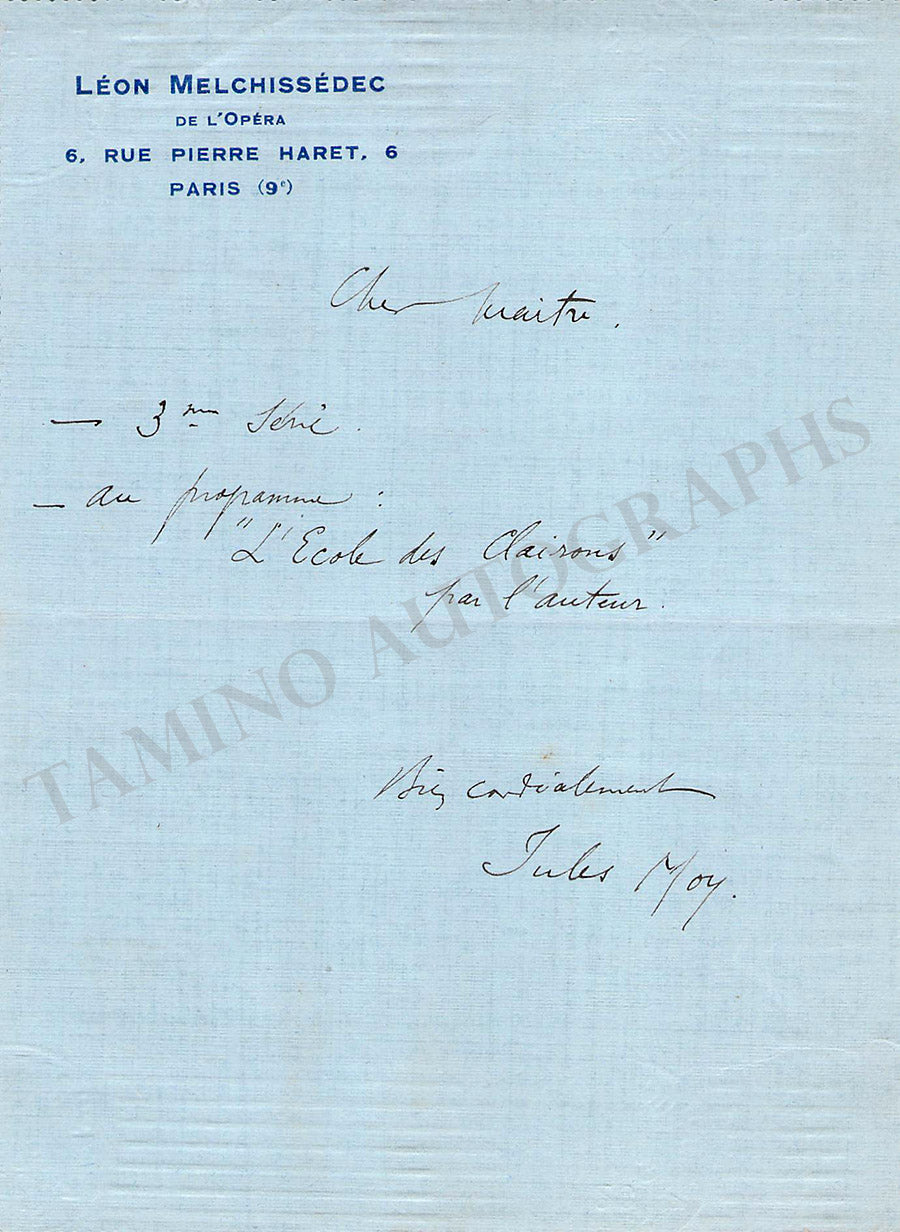 LÉON MELCHISSÉDEC
DE L'OPÉRA
6, RUE PIERRE HARET, 6
PARIS (9e)
Cher Maitre.
— 3me Série.
— au programme :
"L'Ecole des Clairons"
par l'auteur.
Bien cordialement
Jules Moy.
TAMINO AUTOGRAPHS